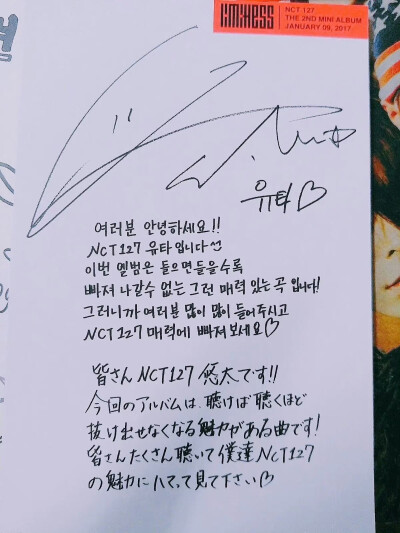 LIMITLESS
NCT 127
THE 2ND MINI ALBUM
JANUARY 09, 2017
유타♡
여러분 안녕하세요!!
NCT127 유타입니다
이번 앨범은 들으면들을수록
빠져 나갈수 없는 그런 매력 있는 곡 입니다!
그러니까 여러분 많이 많이 들어주시고
NCT127 매력에 빠져보세요♡
皆さん NCT127 悠太です!!
今回のアルバムは、聴けば聴くほど
抜け出せなくなる魅力がある曲です!
皆さんたくさん聴いて僕達NCT127
の魅力にハマって見て下さい♡